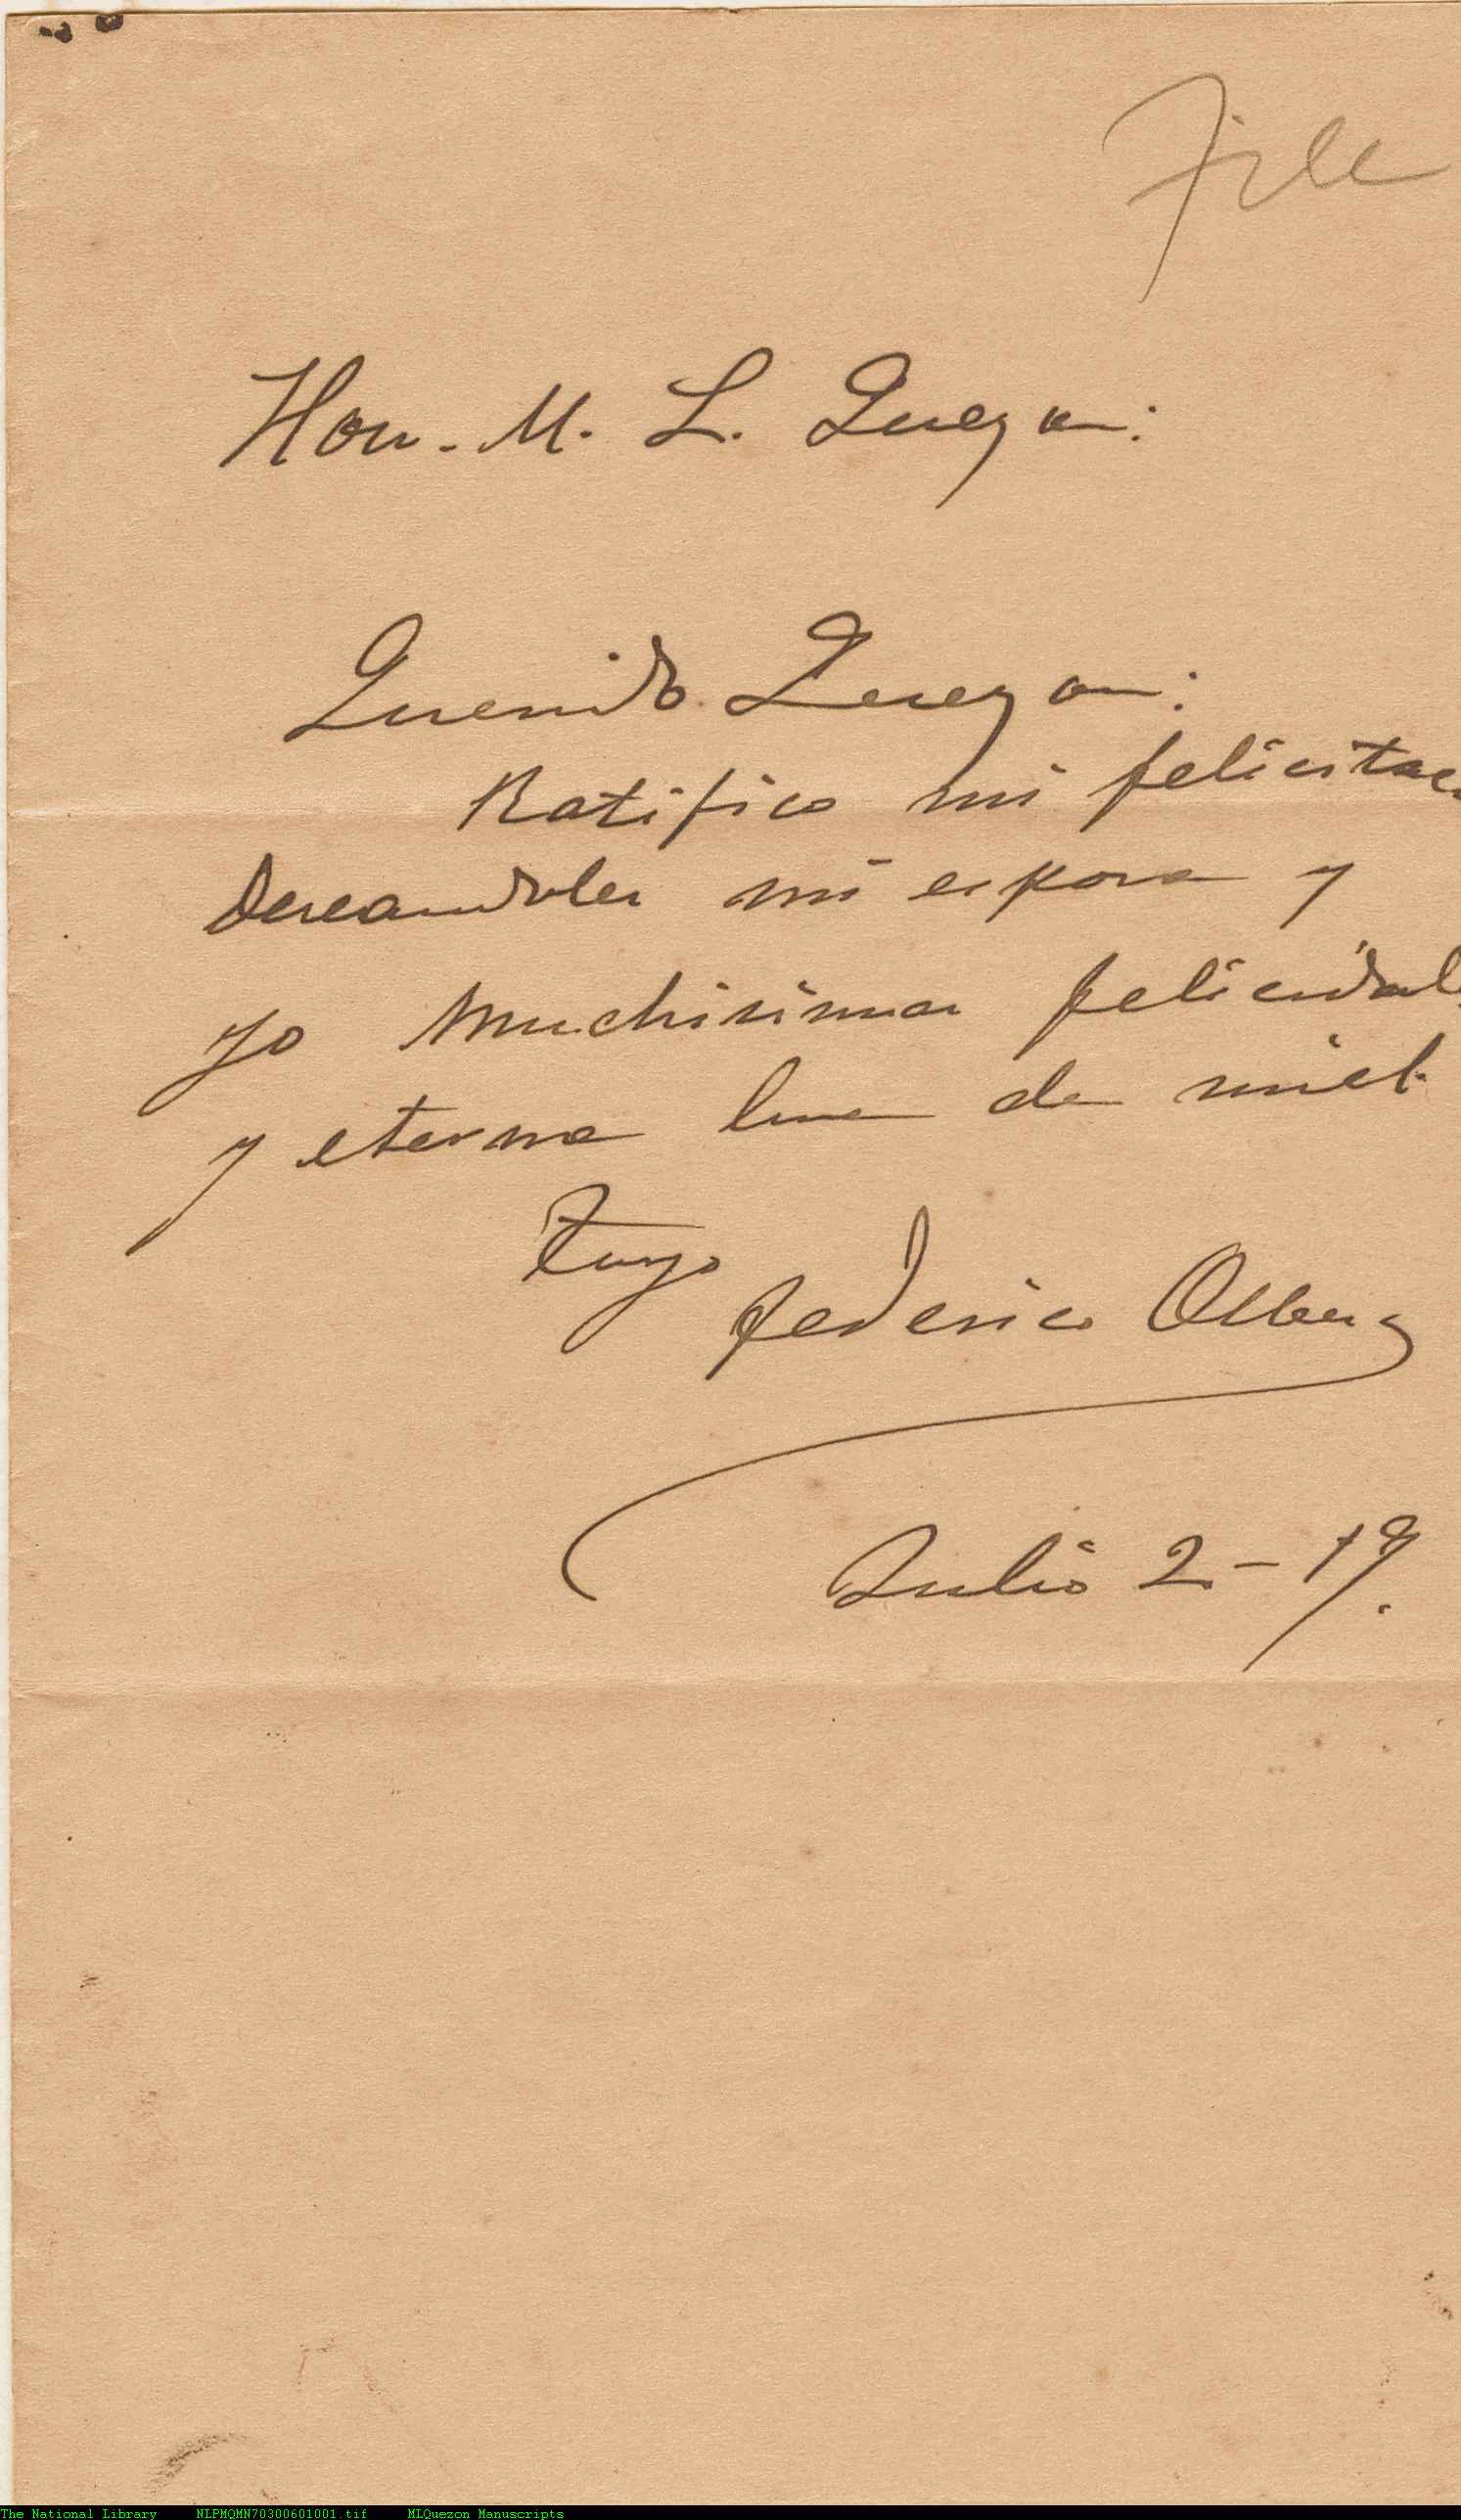 File
Hon. M. L. Quezon:
Querido Quezon:
Ratifico mi felicitac
deseandoles mi esposa y
yo muchisimas felicidad
y eterna luna de miel.
Tuyo
Federico
Julio 2-19.
The National Library NLPMQMN70300601001.tif MLQuezon Manuscripts